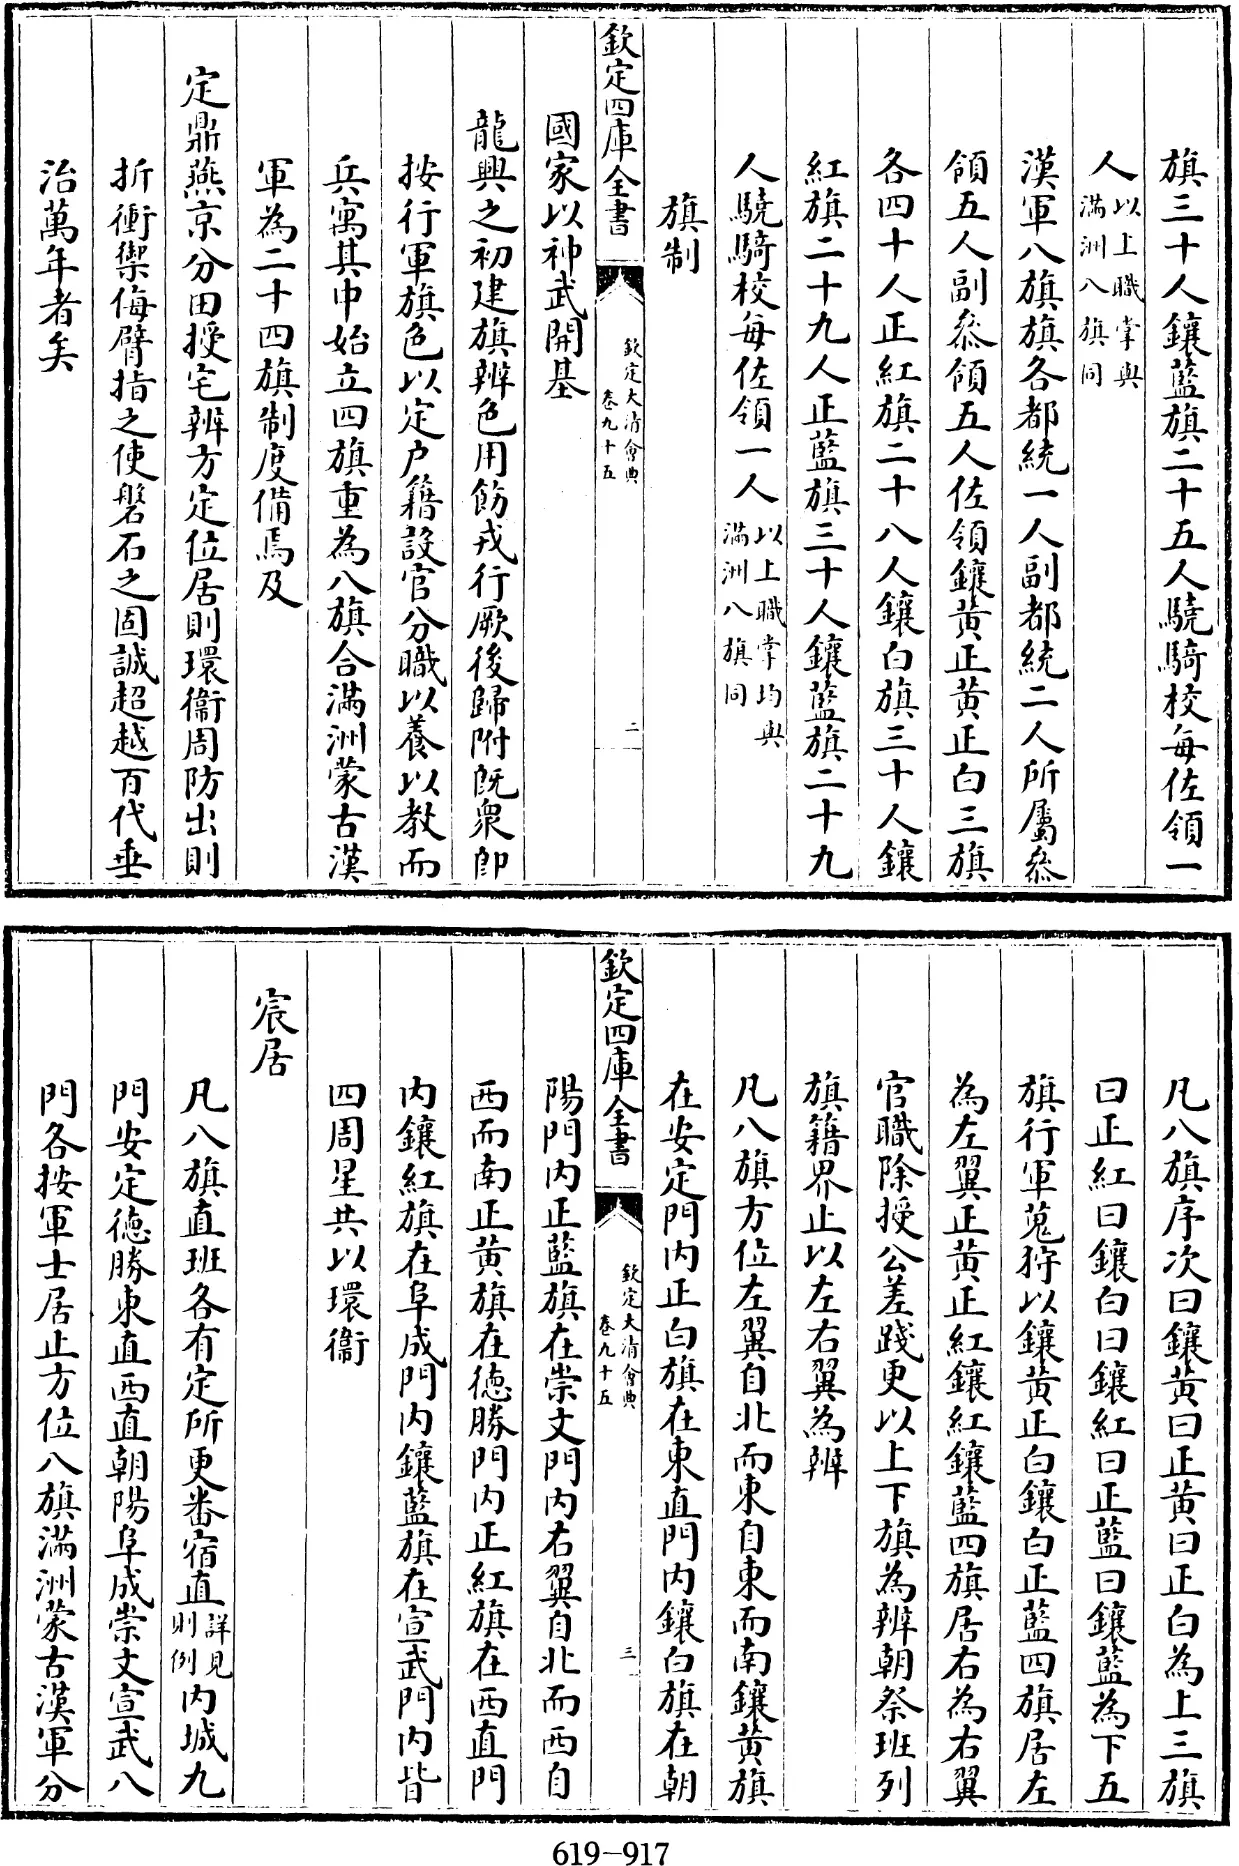 旗三十人鑲藍旗二十五人驍騎校每佐領一
人以上職掌與
滿洲八旗同
漢軍八旗旗各都統一人副都統二人所屬叅
領五人副叅領五人佐領鑲黃正黃正白三旗
各四十人正紅旗二十八人鑲白旗三十人鑲
紅旗二十九人正藍旗三十人鑲藍旗二十九
人驍騎校每佐領一人以上職掌均與
滿洲八旗同
旗制
欽定四庫全書
欽定大清會典
卷九十五
二
國家以神武開基
龍興之初建旗辨色用飭戎行厥後歸附既衆卽
按行軍旗色以定户籍設官分職以養以教而
兵寓其中始立四旗重為八旗合滿洲蒙古漢
軍為二十四旗制度備焉及
定鼎燕京分田授宅辨方定位居則環衞周防出則
折衝禦侮臂指之使磐石之固誠超越百代垂
治萬年者矣
凡八旗序次曰鑲黃曰正黃曰正白為上三旗
曰正紅曰鑲白曰鑲紅曰正藍曰鑲藍為下五
旗行軍蒐狩以鑲黃正白鑲白正藍四旗居左
為左翼正黃正紅鑲紅鑲藍四旗居右為右翼
官職除授公差踐更以上下旗為辨朝祭班列
旗籍界止以左右翼為辨
凡八旗方位左翼自北而東自東而南鑲黃旗
在安定門内正白旗在東直門内鑲白旗在朝
欽定四庫全書
欽定大清會典
卷九十五
三
陽門内正藍旗在崇文門内右翼自北而西自
西而南正黃旗在德勝門内正紅旗在西直門
内鑲紅旗在阜成門内鑲藍旗在宣武門内皆
四周星共以環衞
宸居
凡八旗直班各有定所更番宿直詳見
則例内城九
門安定德勝東直西直朝陽阜成崇文宣武八
門各按軍士居止方位八旗滿洲蒙古漢軍分
619-917